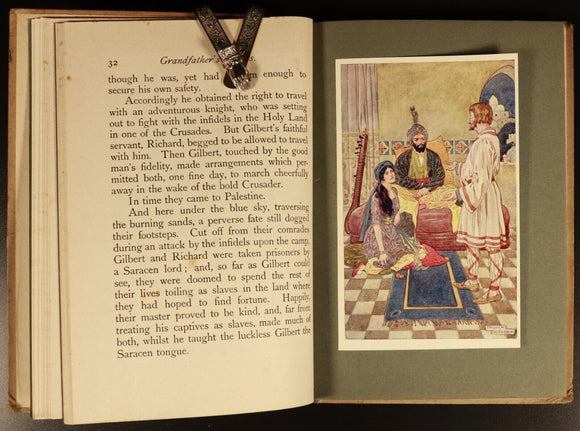 32
Grandfather's
though he was, yet had enough to
secure his own safety.
Accordingly he obtained the right to travel
with an adventurous knight, who was setting
out to fight with the infidels in the Holy Land
in one of the Crusades. But Gilbert's faithful
servant, Richard, begged to be allowed to travel
with him. Then Gilbert, touched by the good
man's fidelity, made arrangements which per-
mitted both, one fine day, to march cheerfully
away in the wake of the bold Crusader.
In time they came to Palestine.
And here under the blue sky, traversing
the burning sands, a perverse fate still dogged
their footsteps. Cut off from their comrades
during an attack by the infidels upon the camp,
Gilbert and Richard were taken prisoners by
a Saracen lord; and, so far as Gilbert could
see, they were doomed to spend the rest of
their lives toiling as slaves in the land where
they had hoped to find fortune. Happily,
their master proved to be kind, and, far from
treating his captives as slaves, made much of
both, whilst he taught the luckless Gilbert the
Saracen tongue.